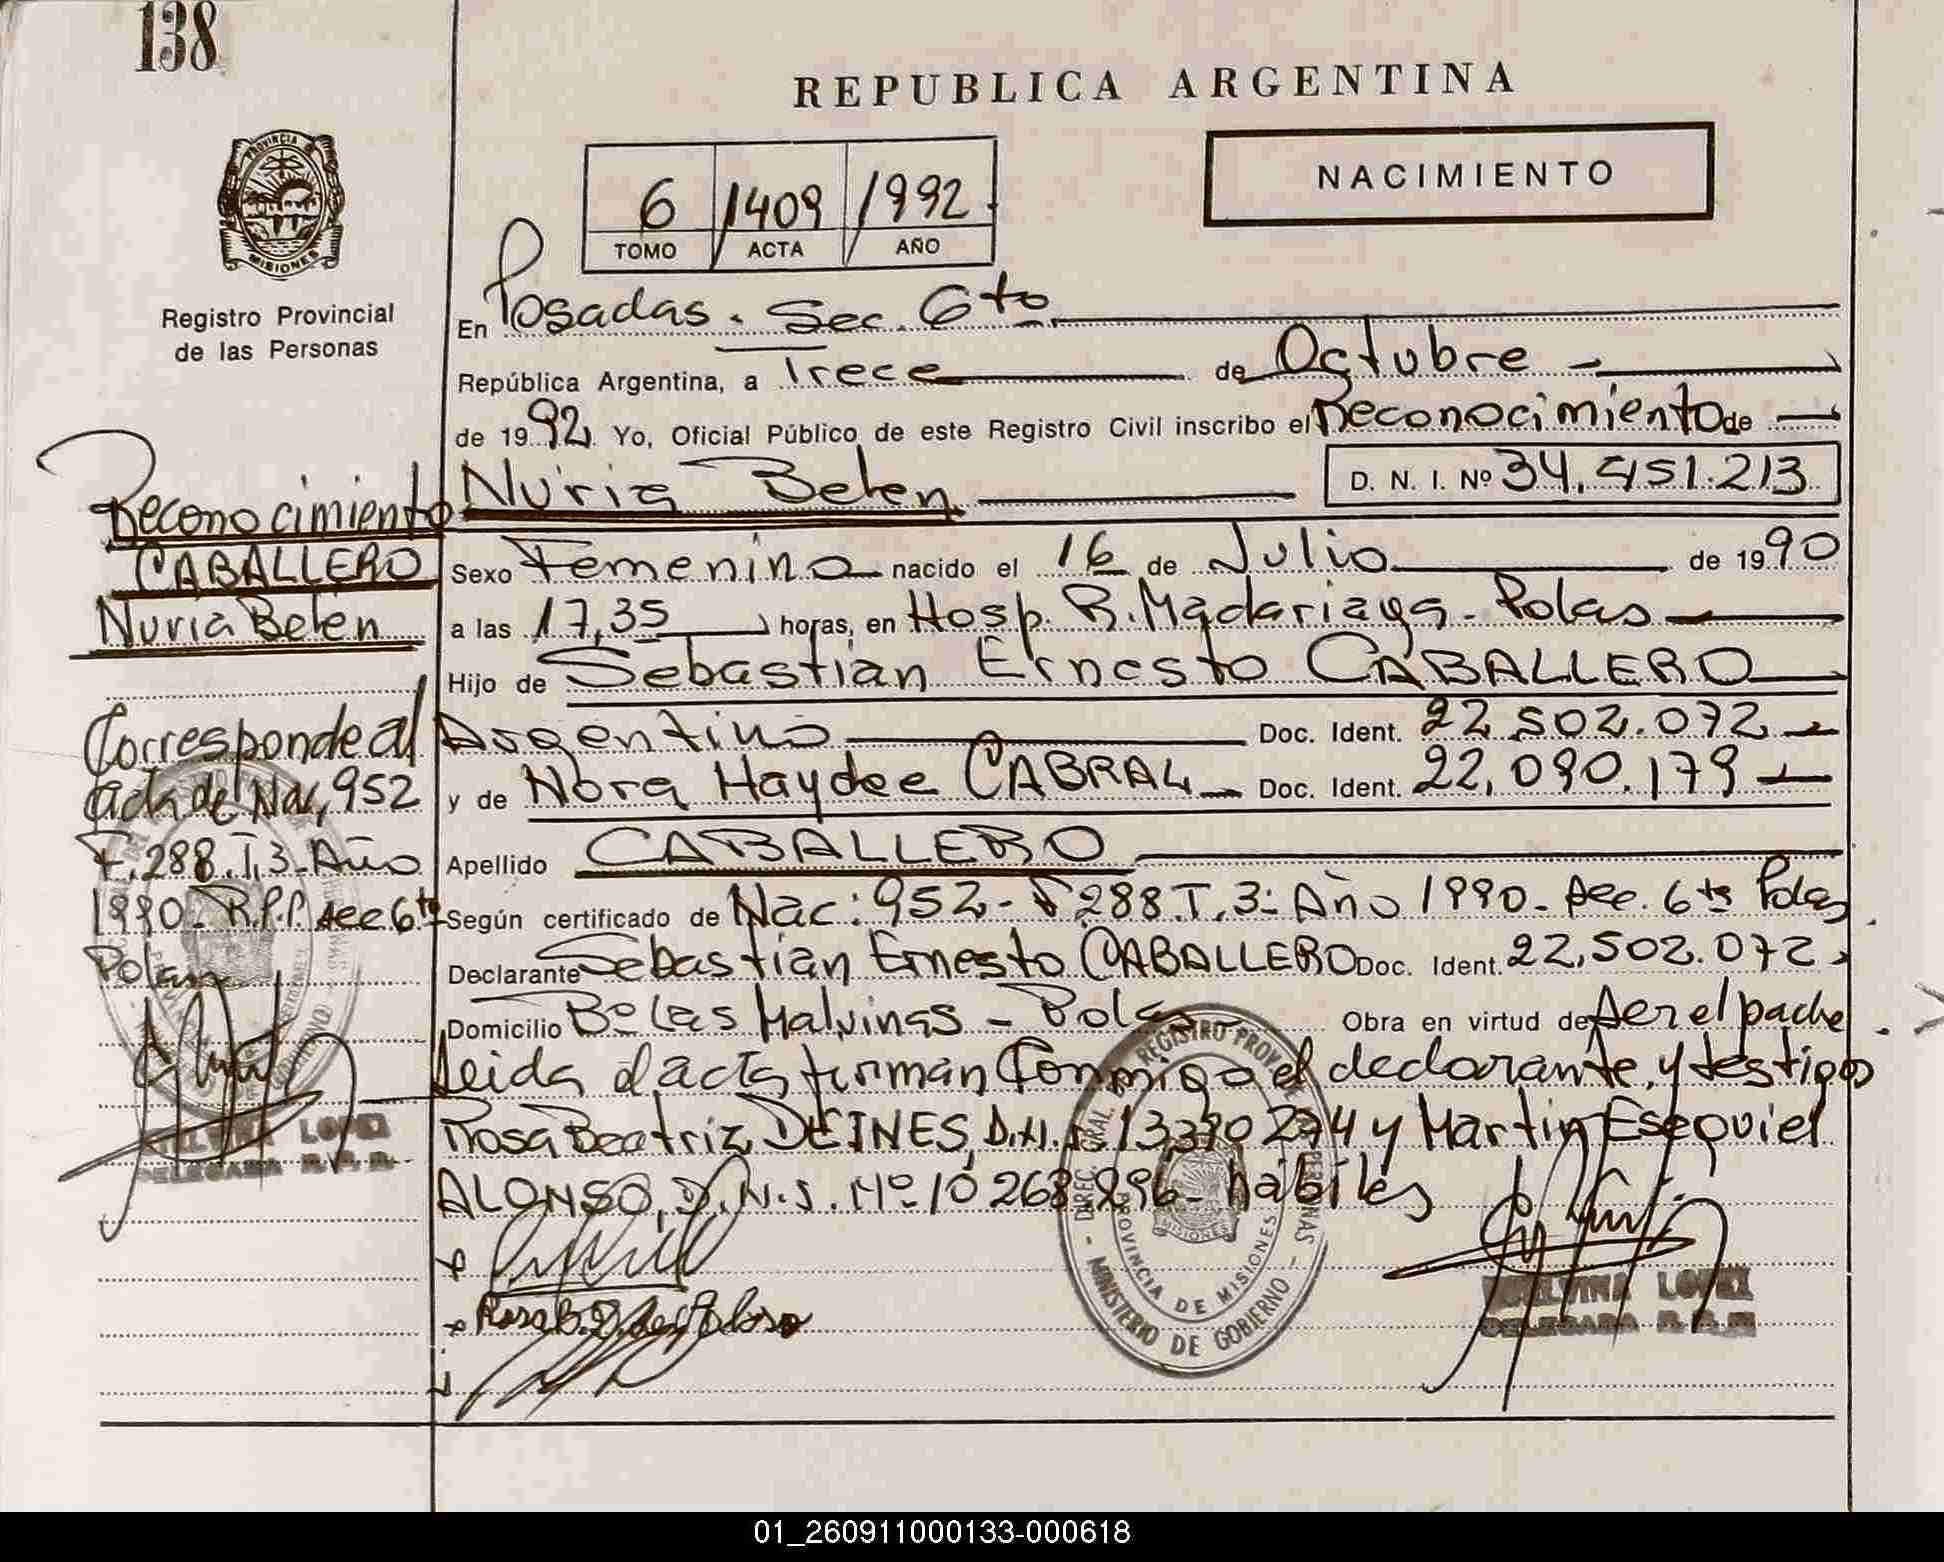 138
REPUBLICA ARGENTINA
PROVINCIA
MISIONES
Registro Provincial
de las Personas
6 1409 1992
TOMO ACTA AÑO
NACIMIENTO
En Posadas. Sec. 6to.
República Argentina, a Trece de Octubre
de 1992. Yo, Oficial Público de este Registro Civil inscribo el Reconocimiento de
Nuria Belen D. N. I. Nº 34.951.213
Sexo Femenino nacido el 16 de Julio de 1990
a las 17,35 horas, en Hosp. R. Madariaga - Pdas
Hijo de Sebastian Ernesto CABALLERO
Argentino Doc. Ident. 22.502.072
y de Nora Haydee CABRAL Doc. Ident. 22.090.179
Apellido CABALLERO
Según certificado de Nac: 952 - F 288. T. 3 - Año 1990 - Sec. 6ta Pdas
Declarante Sebastian Ernesto CABALLERO Doc. Ident. 22.502.072
Domicilio Bº Las Malvinas - Pdas Obra en virtud de Ser el padre
Leida el acta firman Conmigo el declarante, y testigos
Rosa Beatriz DEINES, D.N.I. 13.390274 y Martin Esequiel
ALONSO, D.N.I. Nº 10268296 - hábiles
Reconocimiento
CABALLERO
Nuria Belén
Corresponde al
acta de Nac, 952
F. 288. T. 3 - Año
1990 - R.P.P. Sec 6ta
Pdas
LOPEZ
DELEGADA
DIREC. GRAL. DEL REGISTRO PROV. DE PERSONAS
PROVINCIA DE MISIONES
MINISTERIO DE GOBIERNO
MISIONES
LOPEZ
DELEGADA
01_260911000133-000618